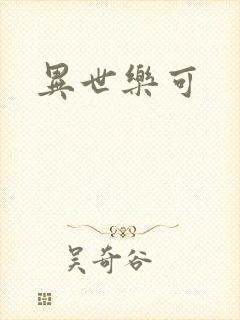 異世樂可
吳奇谷